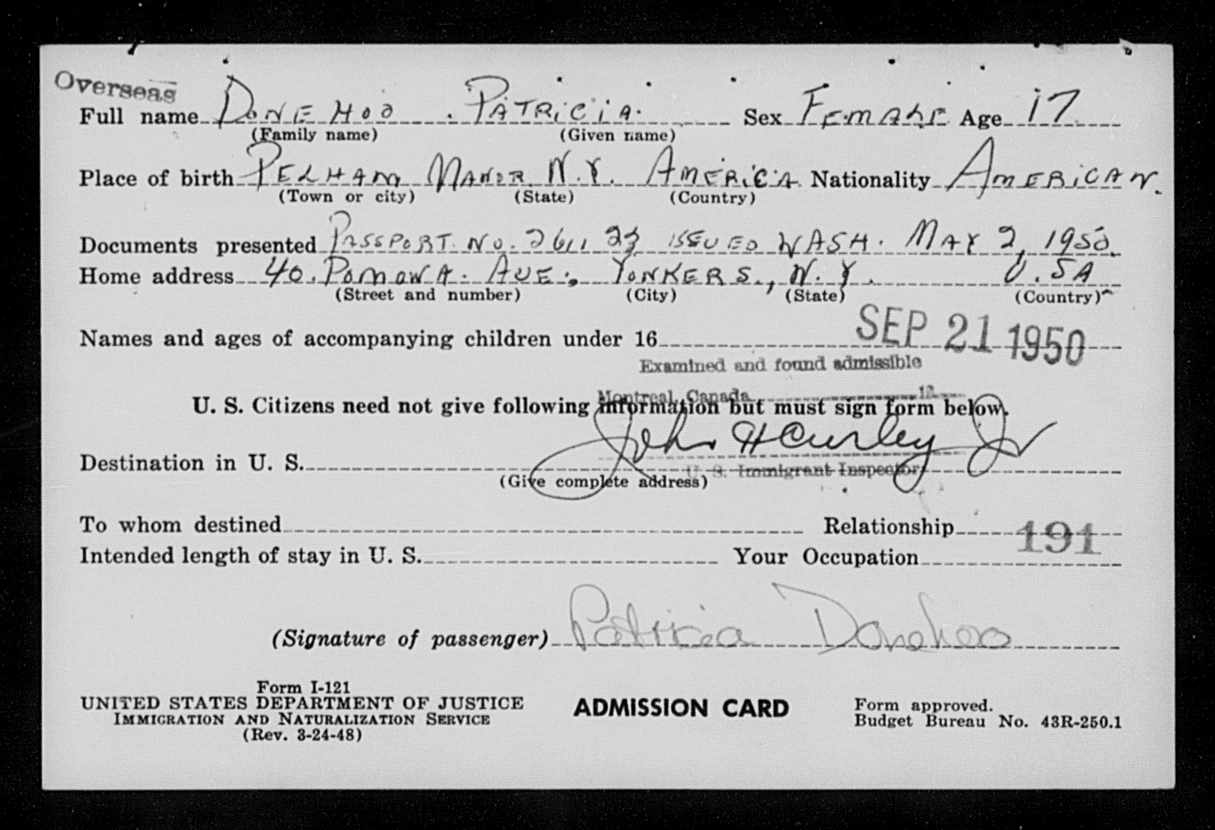 Overseas
Full name DONEHOO . PATRICIA. Sex FEMALE Age 17
(Family name) (Given name)
Place of birth PELHAM MANOR N.Y. AMERICA Nationality AMERICAN.
(Town or city) (State) (Country)
Documents presented PASSPORT. NO. 261123 ISSUED WASH. MAY 2, 1950.
Home address 40. POMONA. AVE., YONKERS., N.Y. U.SA
(Street and number) (City) (State) (Country)
Names and ages of accompanying children under 16 SEP 21 1950
Examined and found admissible
Montreal, Canada 12
U. S. Citizens need not give following information but must sign form below.
John H Curley Jr
Destination in U. S.
(Give complete address) U. S. Immigrant Inspector
To whom destined Relationship 191
Intended length of stay in U. S. Your Occupation
(Signature of passenger) Patricia Donehoo
Form I-121
UNITED STATES DEPARTMENT OF JUSTICE ADMISSION CARD Form approved.
IMMIGRATION AND NATURALIZATION SERVICE Budget Bureau No. 43R-250.1
(Rev. 3-24-48)